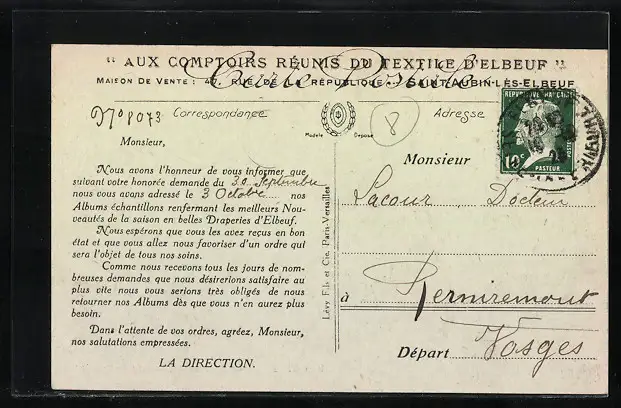 " AUX COMPTOIRS RÉUNIS DU TEXTILE D'ELBEUF "
Carte Postale
MAISON DE VENTE : 47, RUE DE LA RÉPUBLIQUE - SAINT-AUBIN-LÈS-ELBEUF
N° 8073
Correspondance
Modèle Déposé
8
Adresse
RÉPUBLIQUE FRANÇAISE
POSTES
10c
PASTEUR
Monsieur,
Nous avons l'honneur de vous informer que
suivant votre honorée demande du 30 Septembre
nous vous avons adressé le 3 Octobre nos
Albums échantillons renfermant les meilleurs Nou-
veautés de la saison en belles Draperies d'Elbeuf.
Nous espérons que vous les avez reçus en bon
état et que vous allez nous favoriser d'un ordre qui
sera l'objet de tous nos soins.
Comme nous recevons tous les jours de nom-
breuses demandes que nous désirerions satisfaire au
plus vite nous vous serions très obligés de nous
retourner nos Albums dès que vous n'en aurez plus
besoin.
Dans l'attente de vos ordres, agréez, Monsieur,
nos salutations empressées.
LA DIRECTION.
Lévy Fils et Cie, Paris-Versailles
Monsieur
Lacour, Docteur
à Remiremont
Départ Vosges